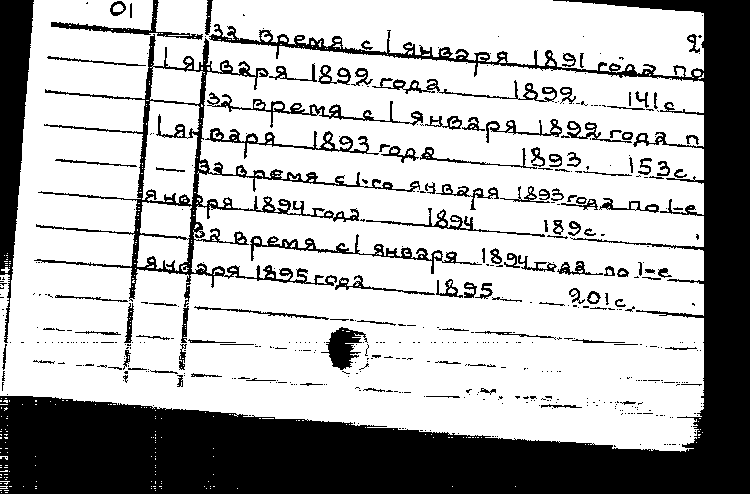 01
За время с 1 января 1891 года по
1 января 1892 года. 1892. 141с.
За время с 1 января 1892 года п
1 января 1893 года 1893. 153с.
— За время с 1-го января 1893 года по 1-е
января 1894 года 1894 189с.
За время с 1 января 1894 года по 1-е
января 1895 года 1895 201с.